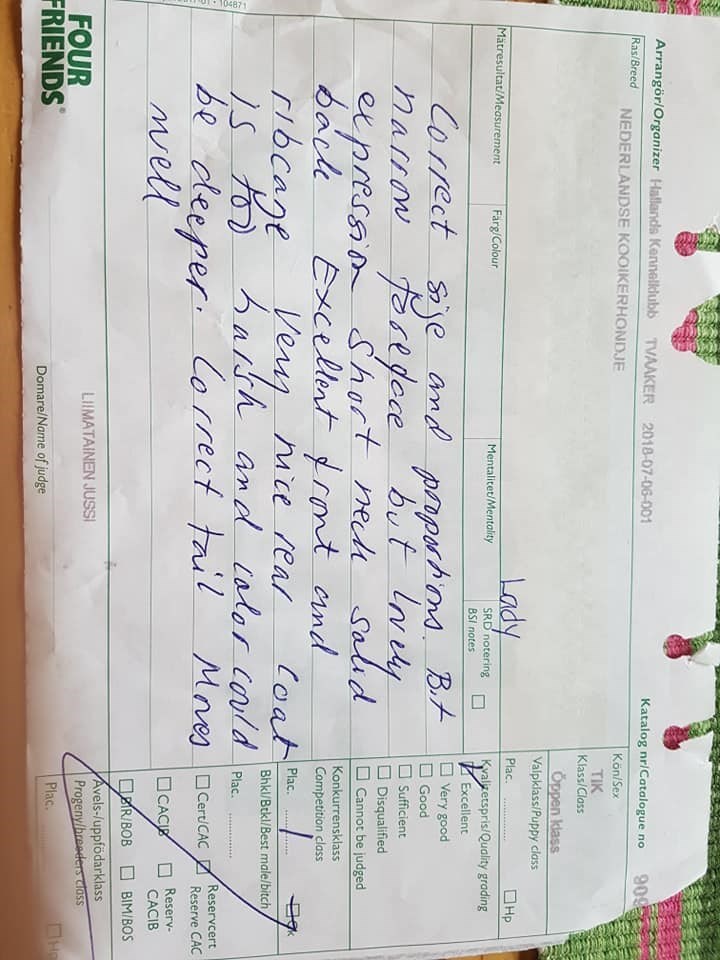 Arrangör/Organizer Hallands Kennelklubb TVAAKER 2018-07-06-001
Katalog nr/Catalogue no 909
Ras/Breed
NEDERLANDSE KOOIKERHONDJE
Kön/Sex
TIK
Klass/Class
Öppen klass
Lady
Valpklass/Puppy class
Plac. ............ Hp
Mätresultat/Measurement
Färg/Colour
Mentalitet/Mentality
SRD notering
BSI notes
Kvalitetspris/Quality grading
Excellent
Very good
Good
Sufficient
Disqualified
Cannot be judged
Correct size and proportions. Bit
narrow foreface but lovely
expression Short neck solid
back Excellent front and
ribcage Very nice rear coat
is too harsh and color could
be deeper. Correct tail Moves
well
Konkurrensklass
Competition class
Plac. ....1....
Bhkl/Btkl/Best male/bitch
Plac. ............
Cert/CAC
Reservcert
Reserve CAC
CACIB
Reserv-
CACIB
BIR/BOB
BIM/BOS
Avels-/uppfödarklass
Progeny/breeders class
Plac.
FOUR
FRIENDS®
LIIMATAINEN JUSSI
Domare/Name of judge